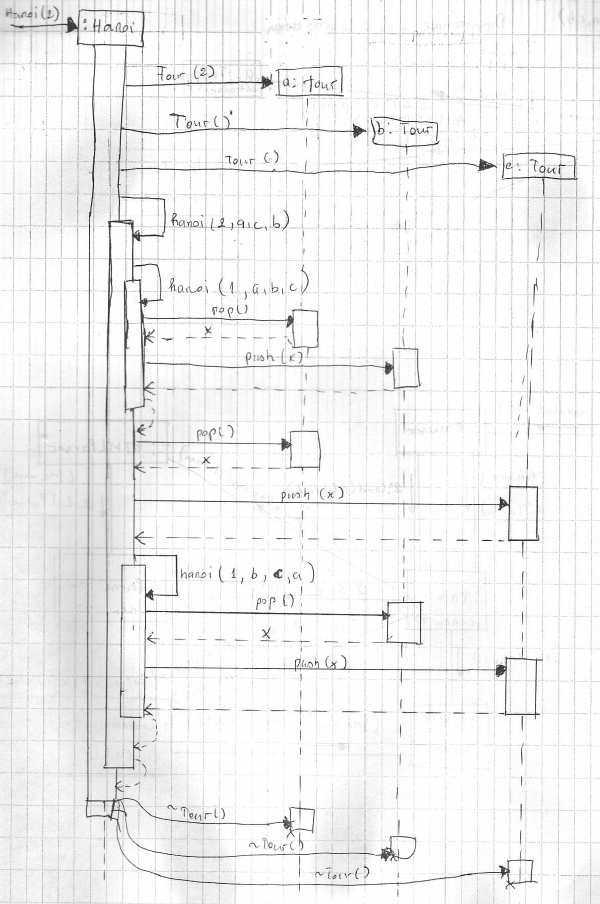 Hanoi(2)
:Hanoi
Tour(2)
a: Tour
Tour()
b: Tour
Tour()
c: Tour
hanoi(2,a,c,b)
hanoi(1,a,b,c)
pop()
x
push(x)
pop()
x
push(x)
hanoi(1,b,c,a)
pop()
x
push(x)
~Tour()
~Tour()
~Tour()